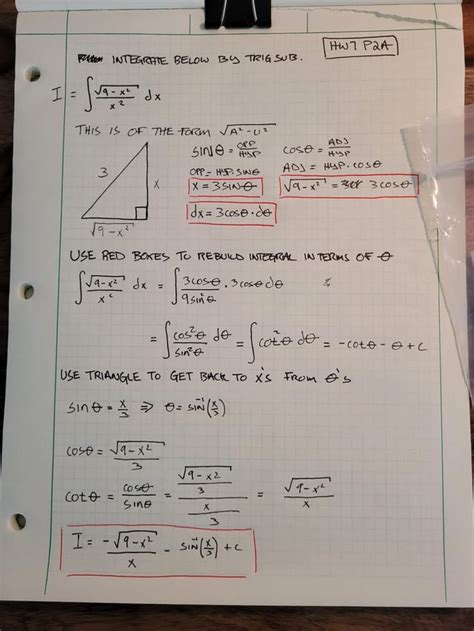 HW7 P2A
INTEGRATE BELOW BY TRIG SUB.
I = ∫ √(9-x²)/x² dx
THIS IS OF THE FORM √(A²-U²)
3
x
√(9-x²)
sinθ = OPP/HYP
OPP = HYP·sinθ
x = 3sinθ
dx = 3cosθ·dθ
cosθ = ADJ/HYP
ADJ = HYP·cosθ
√(9-x²) = 3cosθ
USE RED BOXES TO REBUILD INTEGRAL IN TERMS OF θ
∫ √(9-x²)/x² dx = ∫ 3cosθ/9sin²θ · 3cosθ dθ
= ∫ cos²θ/sin²θ dθ = ∫ cot²θ dθ = -cotθ - θ + C
USE TRIANGLE TO GET BACK TO x's FROM θ's
sinθ = x/3 ⇒ θ = sin⁻¹(x/3)
cosθ = √(9-x²)/3
cotθ = cosθ/sinθ = (√(9-x²)/3)/(x/3) = √(9-x²)/x
I = -√(9-x²)/x - sin⁻¹(x/3) + C